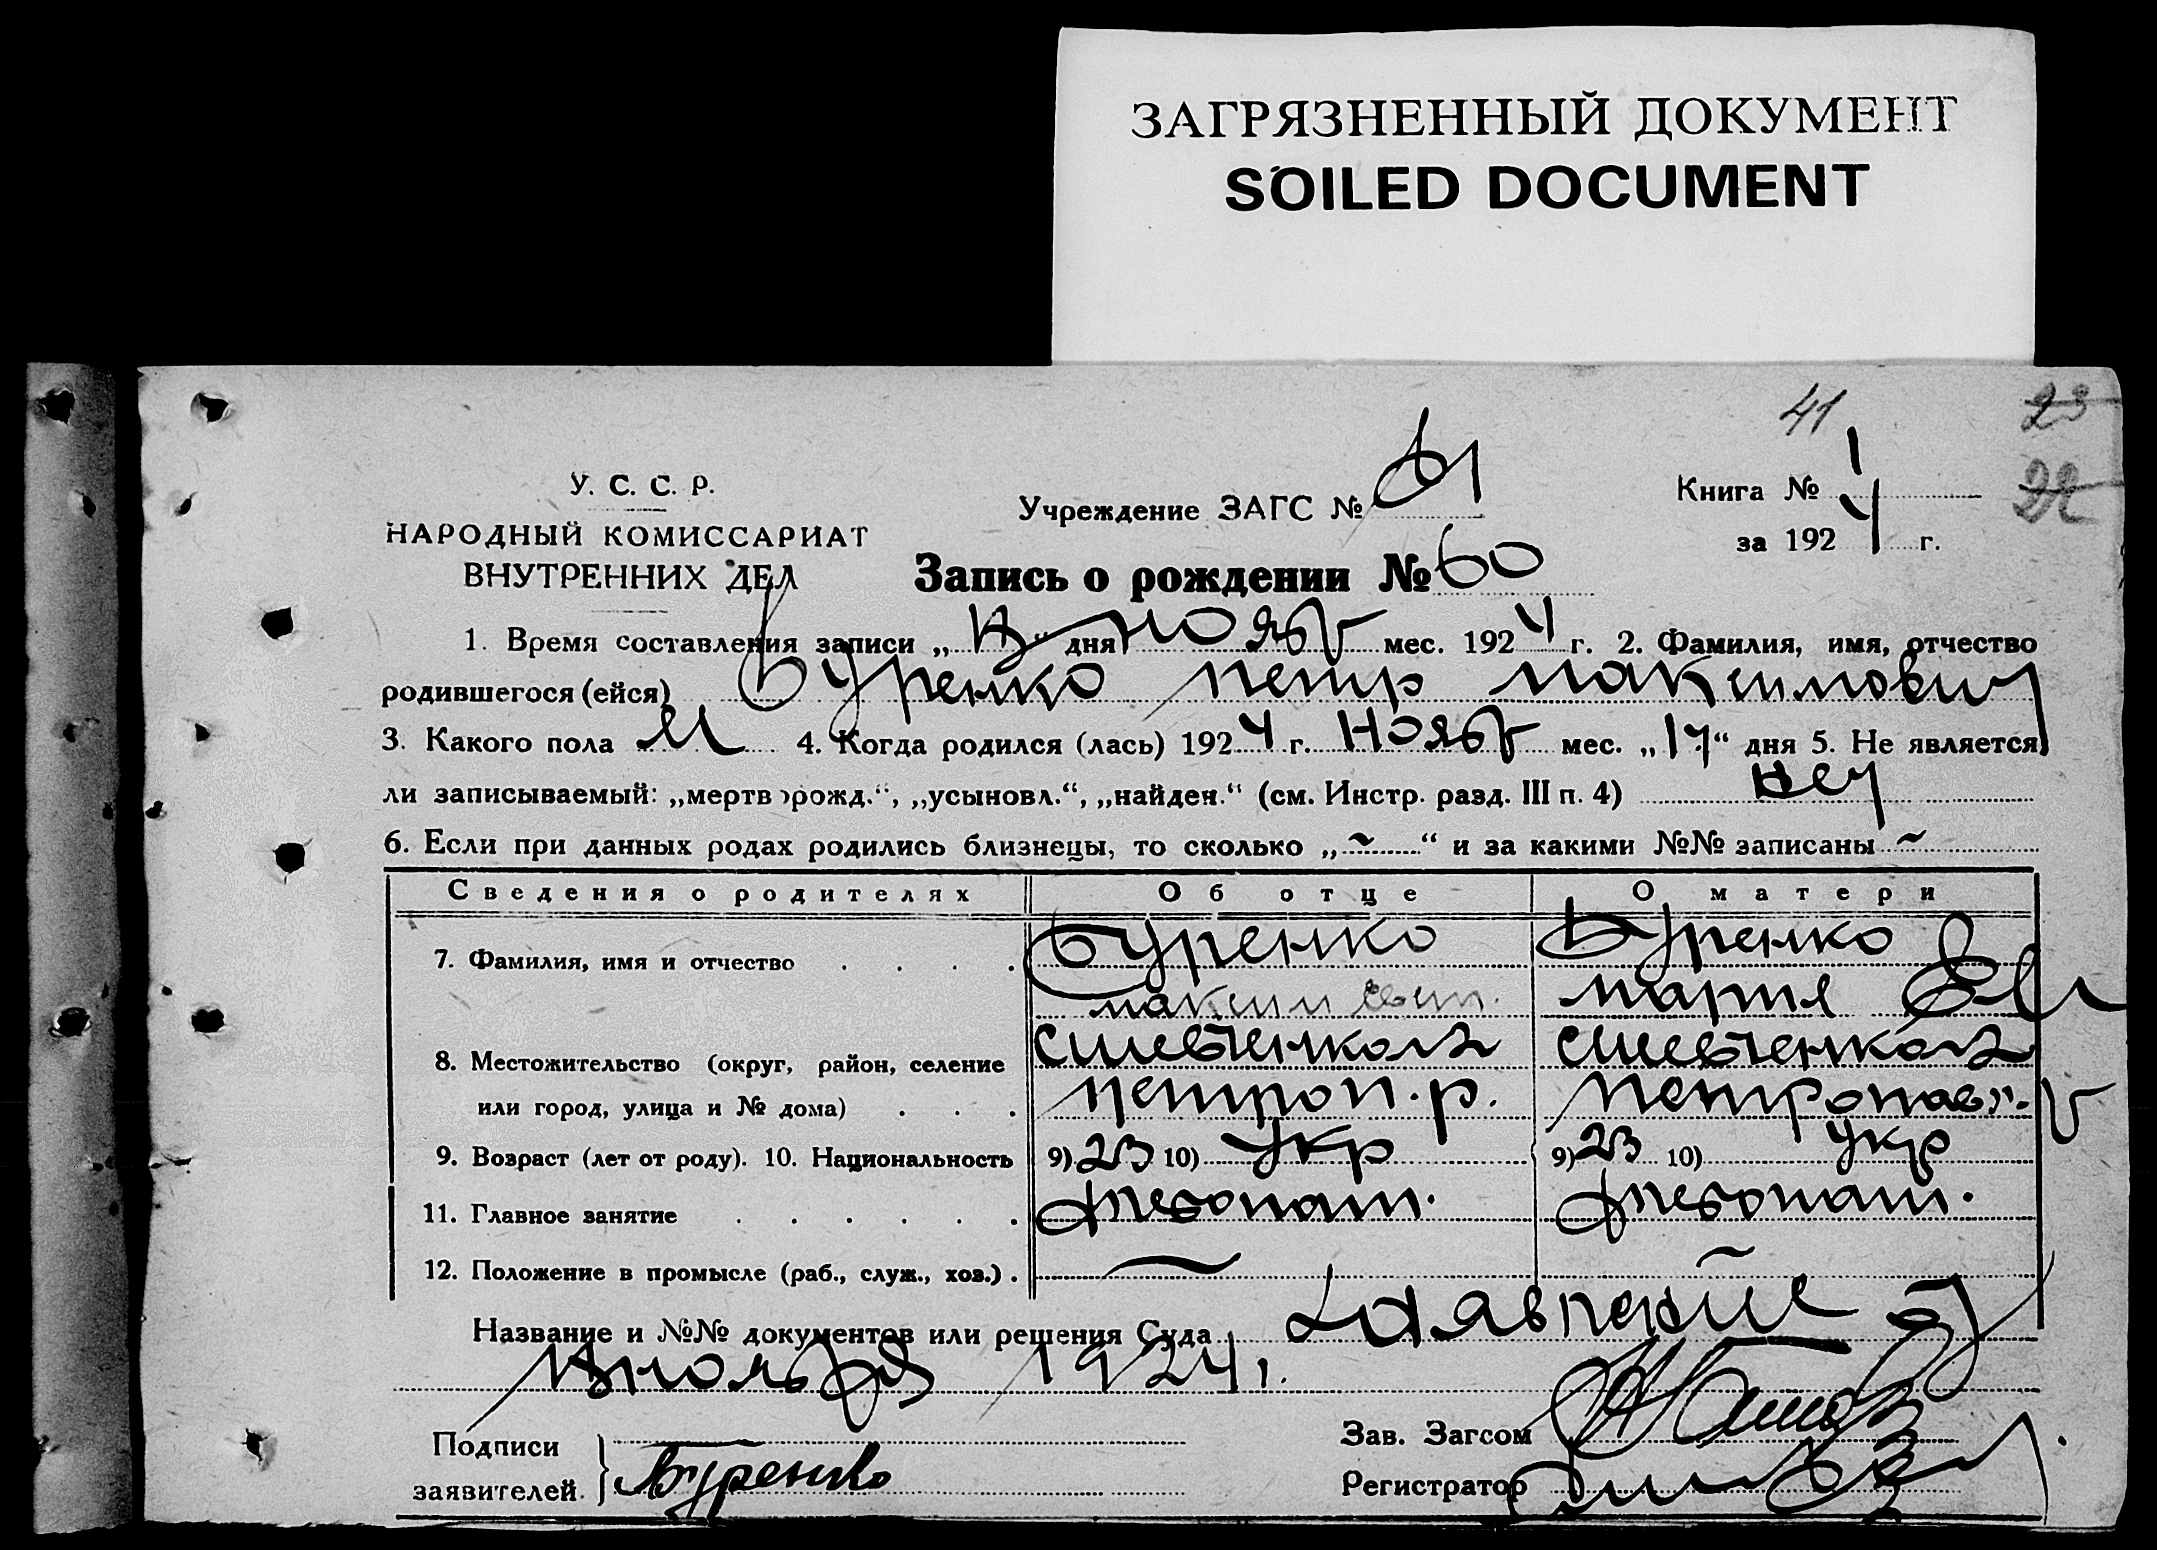 ЗАГРЯЗНЕННЫЙ ДОКУМЕНТ
SOILED DOCUMENT
41 23
22
У. С. С. Р.
НАРОДНЫЙ КОМИССАРИАТ
ВНУТРЕННИХ ДЕЛ
Учреждение ЗАГС №
Книга № 1
за 1924 г.
Запись о рождении № 60
1. Время составления записи „ “ дня нояб мес. 1924 г. 2. Фамилия, имя, отчество
родившегося (ейся) Буренко Петр Максимович
3. Какого пола М 4. Когда родился (лась) 1924 г. нояб мес. „17“ дня 5. Не является
ли записываемый: „мертворожд.“, „усыновл.“, „найден.“ (см. Инстр. разд. III п. 4) нет
6. Если при данных родах родились близнецы, то сколько „~“ и за какими №№ записаны ~
Сведения о родителях Об отце О матери
7. Фамилия, имя и отчество . . . . Буренко Буренко
Максим Мария
8. Местожительство (округ, район, селение
или город, улица и № дома) . . . Петроп. р. Петропавл.
9. Возраст (лет от роду). 10. Национальность 9) 23 10) укр 9) 23 10) укр
11. Главное занятие . . . . . . хлебопаш. хлебопаш.
12. Положение в промысле (раб., служ., хоз.) . — ~
Название и №№ документов или решения Суда
1924 г.
Подписи
заявителей. Буренко
Зав. Загсом
Регистратор